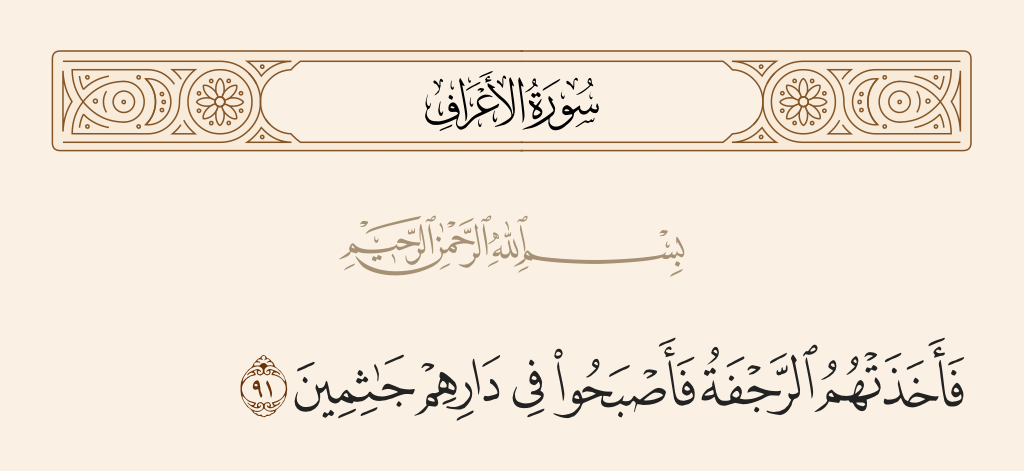 سُورَةُ الأَعْرَافِ
بِسْمِ ٱللَّهِ ٱلرَّحْمَٰنِ ٱلرَّحِيمِ
فَأَخَذَتْهُمُ ٱلرَّجْفَةُ فَأَصْبَحُوا۟ فِى دَارِهِمْ جَٰثِمِينَ ٩١